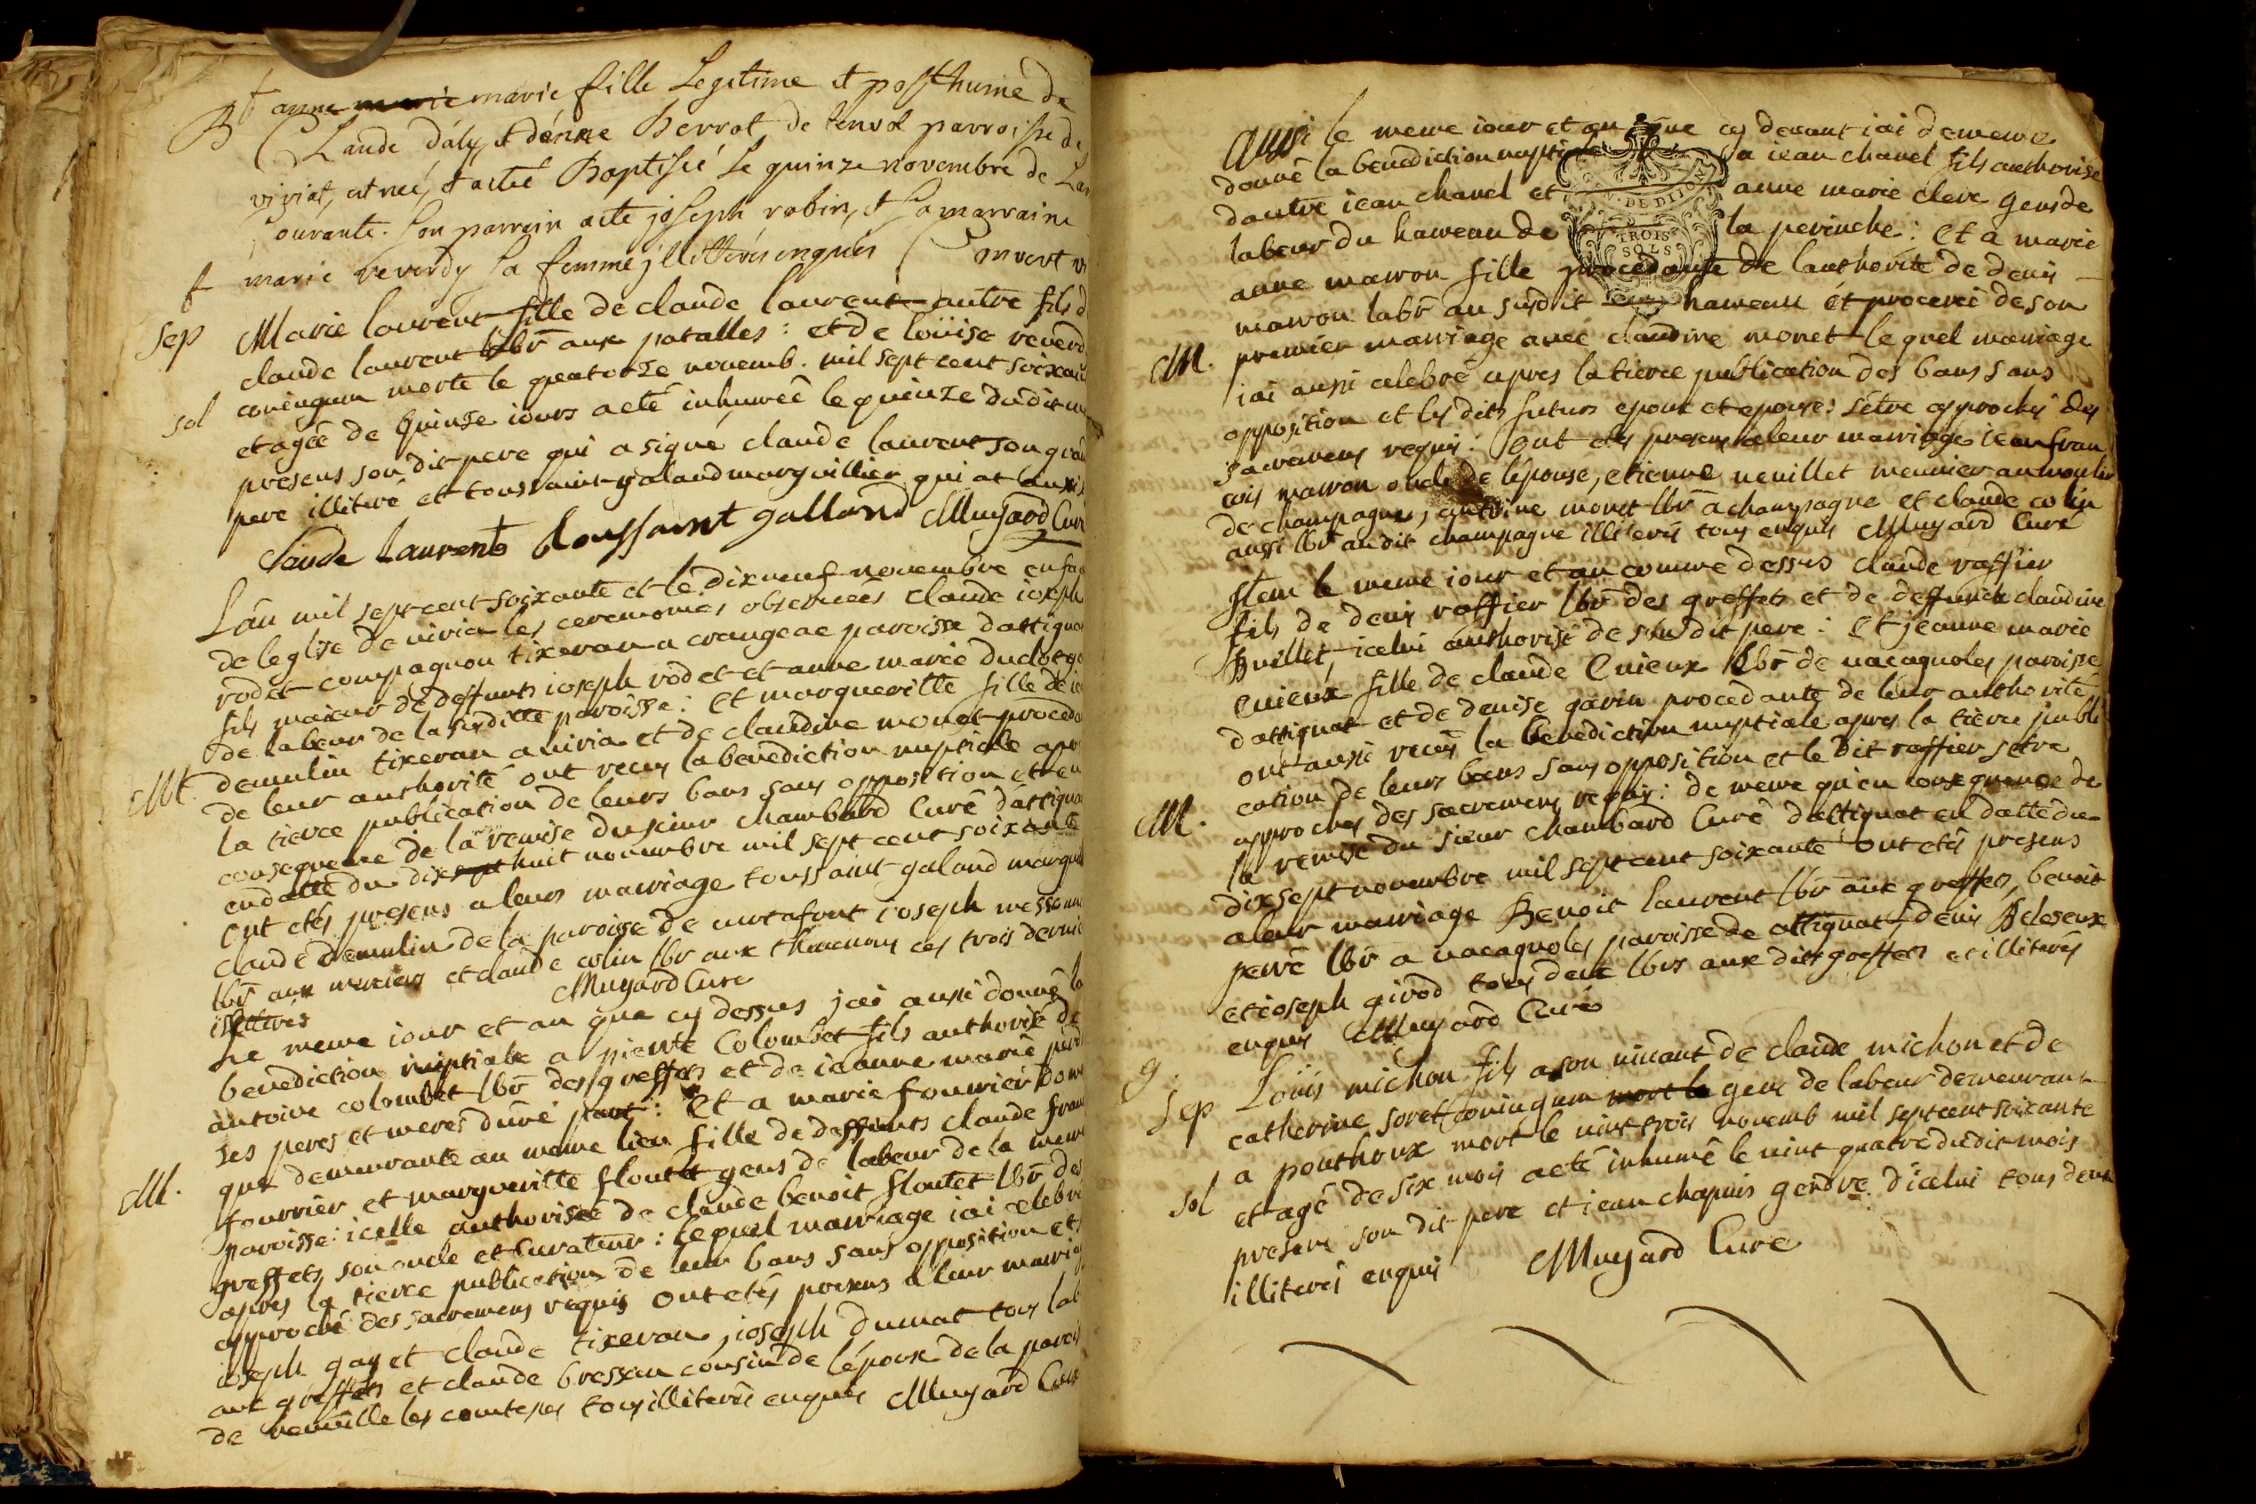 Bt anne marie marie fille Legitime et posthume de
Claude daly et denise Berrot de tenod parroisse de
viriat, est née, et a été Baptisée Le quinze novembre de Lan
Courante. Son parrain a ete joseph robin, et Sa marraine
marie reverdy Sa femme jllitterés enquis Muert
sep Marie laurent fille de claude laurent autre fils d
claude laurent lbr aux patalles : et de loüise reverd
sol coniugum morte le quatorze novemb. mil sept cent soixan
et agée de quinze iours a eté inhumée le quinze dudit m
presens son dit pere qui a signé claude laurent son grd
pere illiteré et toussaint galand marguillier qui at aussi
Claude Laurent toussaint galland Muyard Curé
L'an mil sept cent soixante et le dix neuf novembre en fa
de leglise de viria les ceremonies observées claude ioseph
rodet compagnon tixeran a crangeac paroisse d'attigna
fils maieur de deffunts ioseph rodet et anne marie duclos
de labeur de la susditte paroisse : et marguerithe fille de
M. demulin tixeran a viria et de claudine monet proceda
de leur authorité ont receu la benediction nuptiale apr
la tierce publication de leurs bans sans opposition et en
consequence de la remise du sieur chambard Curé d'attigna
en datte du dix sept huit novembre mil sept cent soixante
ont etés presens a leurs marriage toussaint galand marguil
claude demulin de la paroisse de curtafont ioseph messon
lbr aux meuniers et claude colin lbr aux thevenons ces trois dernie
illiterés Muyard Curé
Le meme iour et an que cy dessus j'ai aussi donné la
benediction nuptiale a pierre Colombet fils authorisé de
antoine colombet lbr des greffets et de ieanne marie
ses peres et meres d'une part : et a marie fourrier dome
que demeurante au meme lieu fille de deffunts claude fran
M. fourrier et marguerithe floutet gens de labeur de la meme
paroisse : icelle authorisée de claude benoit floutet lbr des
greffets son oncle et Curateur : lequel marriage iai celebré
apres la tierce publication de leur bans sans opposition et
approché des sacremens requis ont etés presens a leur marriag
ioseph gay et claude tixeran, ioseph dumat tous lab
aux greffets et claude bressan cousin de l'épouse de la parois
de les comtesses tous illiterés enquis Muyard Curé
Aussi le meme iour et an que cy devant iai de meme
donné la benediction nuptiale a iean chanel fils authorisé
d'autre iean chanel et anne marie clere gens de
labeur du hameau de la perinche : et a marie
GEN. DE DIJON
TROIS
SOLS
anne marron fille procedante de lauthorité de denis
marron labr au susdit hameau et proceréé de son
M. premier marriage avec claudine monet lequel marriage
iai aussi celebré apres la tierce publication des bans sans
opposition et les dits futurs epoux et epouse : s'etre approchés des
sacremens requis : ont etés presens a leur marriage iean fran
cois marron oncle de l'épouse, etienne neuillet meunier au moulin
de champagne, antoine monet lbr a champagne et claude colin
aussi lbr audit champagne illiterés tous enquis Muyard Curé
Item le meme iour et an comme dessus claude raffier
fils de denis raffier lbr des greffets et de deffuncte claudine
Buillet, icelui authorisé de son dit pere : et jeanne marie
Cuieux fille de claude Cuieux lbr de vacagnoles paroisse
d'attignat et de denise garin procedante de leur authorité
ont aussi receu la benediction nuptiale apres la tierce publi
cation de leurs bans sans opposition et le dit raffier s'etre
M. approchés des sacremens requis : de meme qu'en consequence de
la remise du sieur chambard Curé d'attignat en datte du
dix sept novembre mil sept cent soixante ont etés presens
a leur marriage Benoit laurent lbr aux greffets, benoit
perré lbr a vacagnoles paroisse de attignat, denis Beleseux
et ioseph girod tous deux lbrs aux dits greffets et illiterés
enquis Muyard Curé
g. Loüis michon fils a son vivant de claude michon et de
sep catherine soret coniugum mort le gens de labeur demeurant
a pouthoux mort le vint trois novemb mil sept cent soixante
sol et agé de six mois a eté inhumé le vint quatre dudit mois
presens son dit pere et iean chapuis gendre d'icelui tous deux
illiterés enquis Muyard Curé